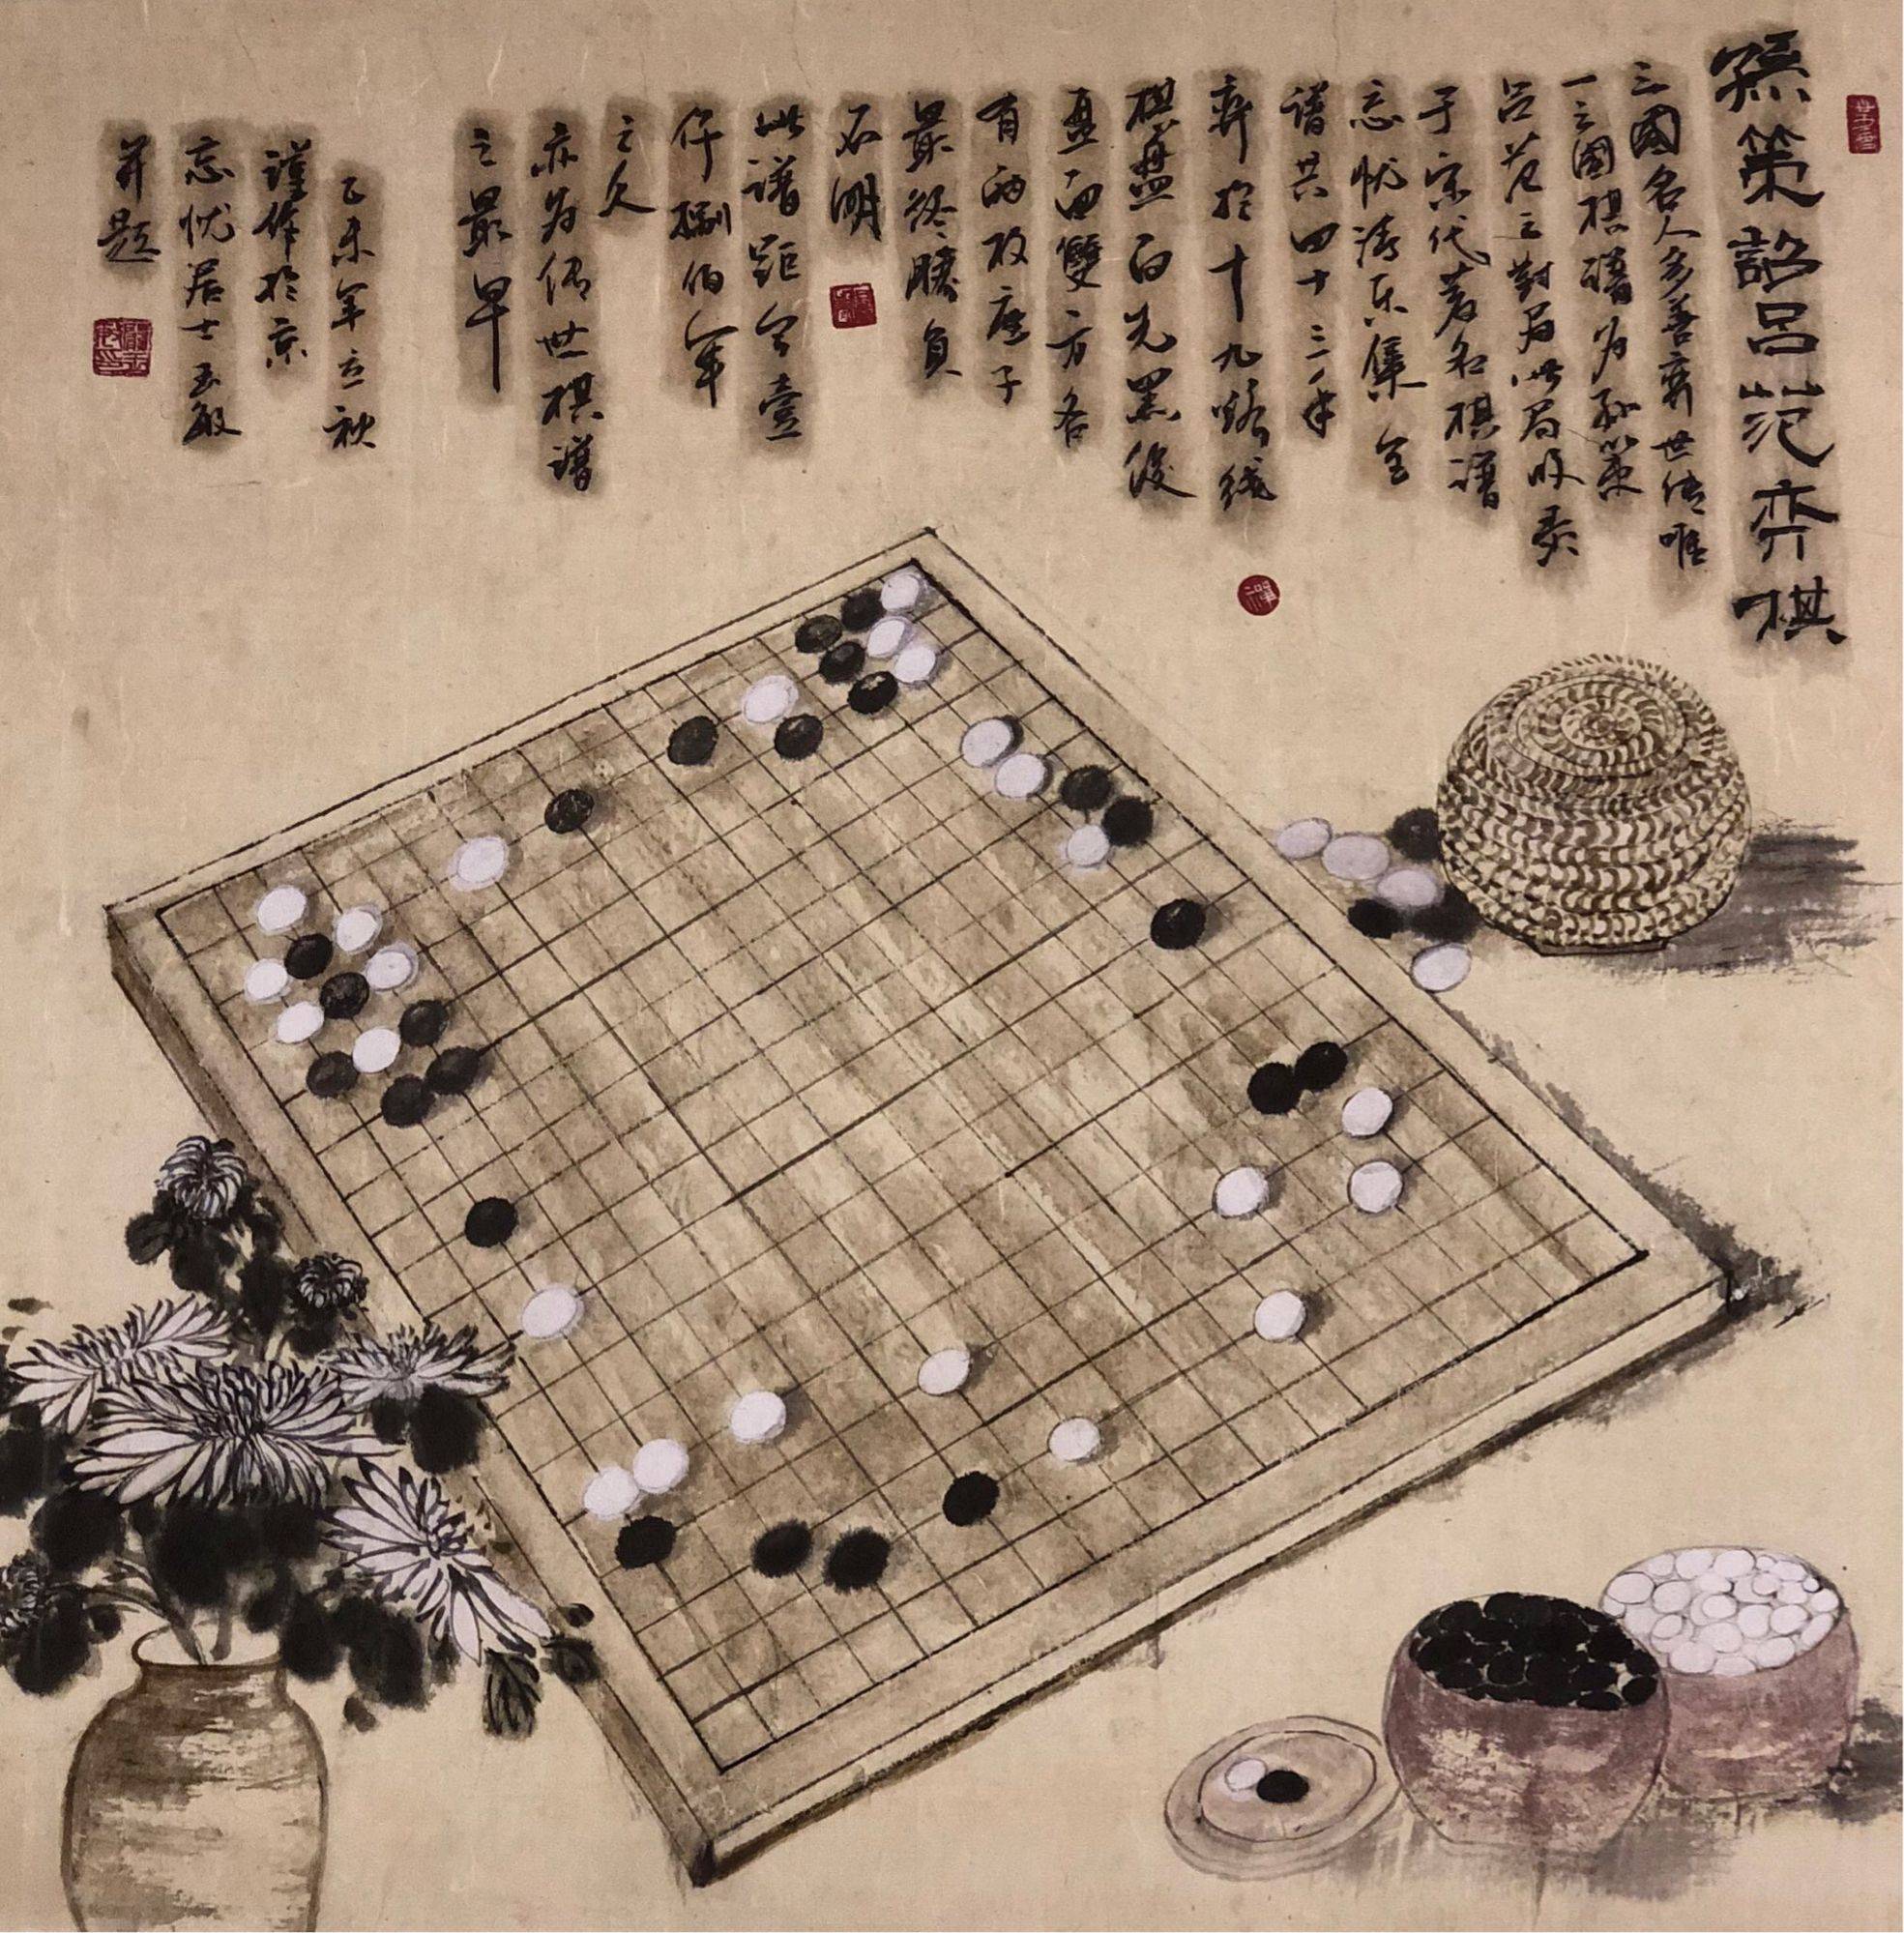 孫策詔呂范弈棋
三國名人多善弈世传唯
一三國棋譜为孙策
呂范之對局此局收录
于宋代著名棋譜
忘忧清乐集全
譜共四十三手
弈於十九路线
棋盤白先黑後
盘面雙方各
有两枚座子
最终勝负
不明
此譜距今壹
仟捌佰年
之久
亦为传世棋譜
之最早
乙未年立秋
謹作於京
忘忧居士玉敏
并题